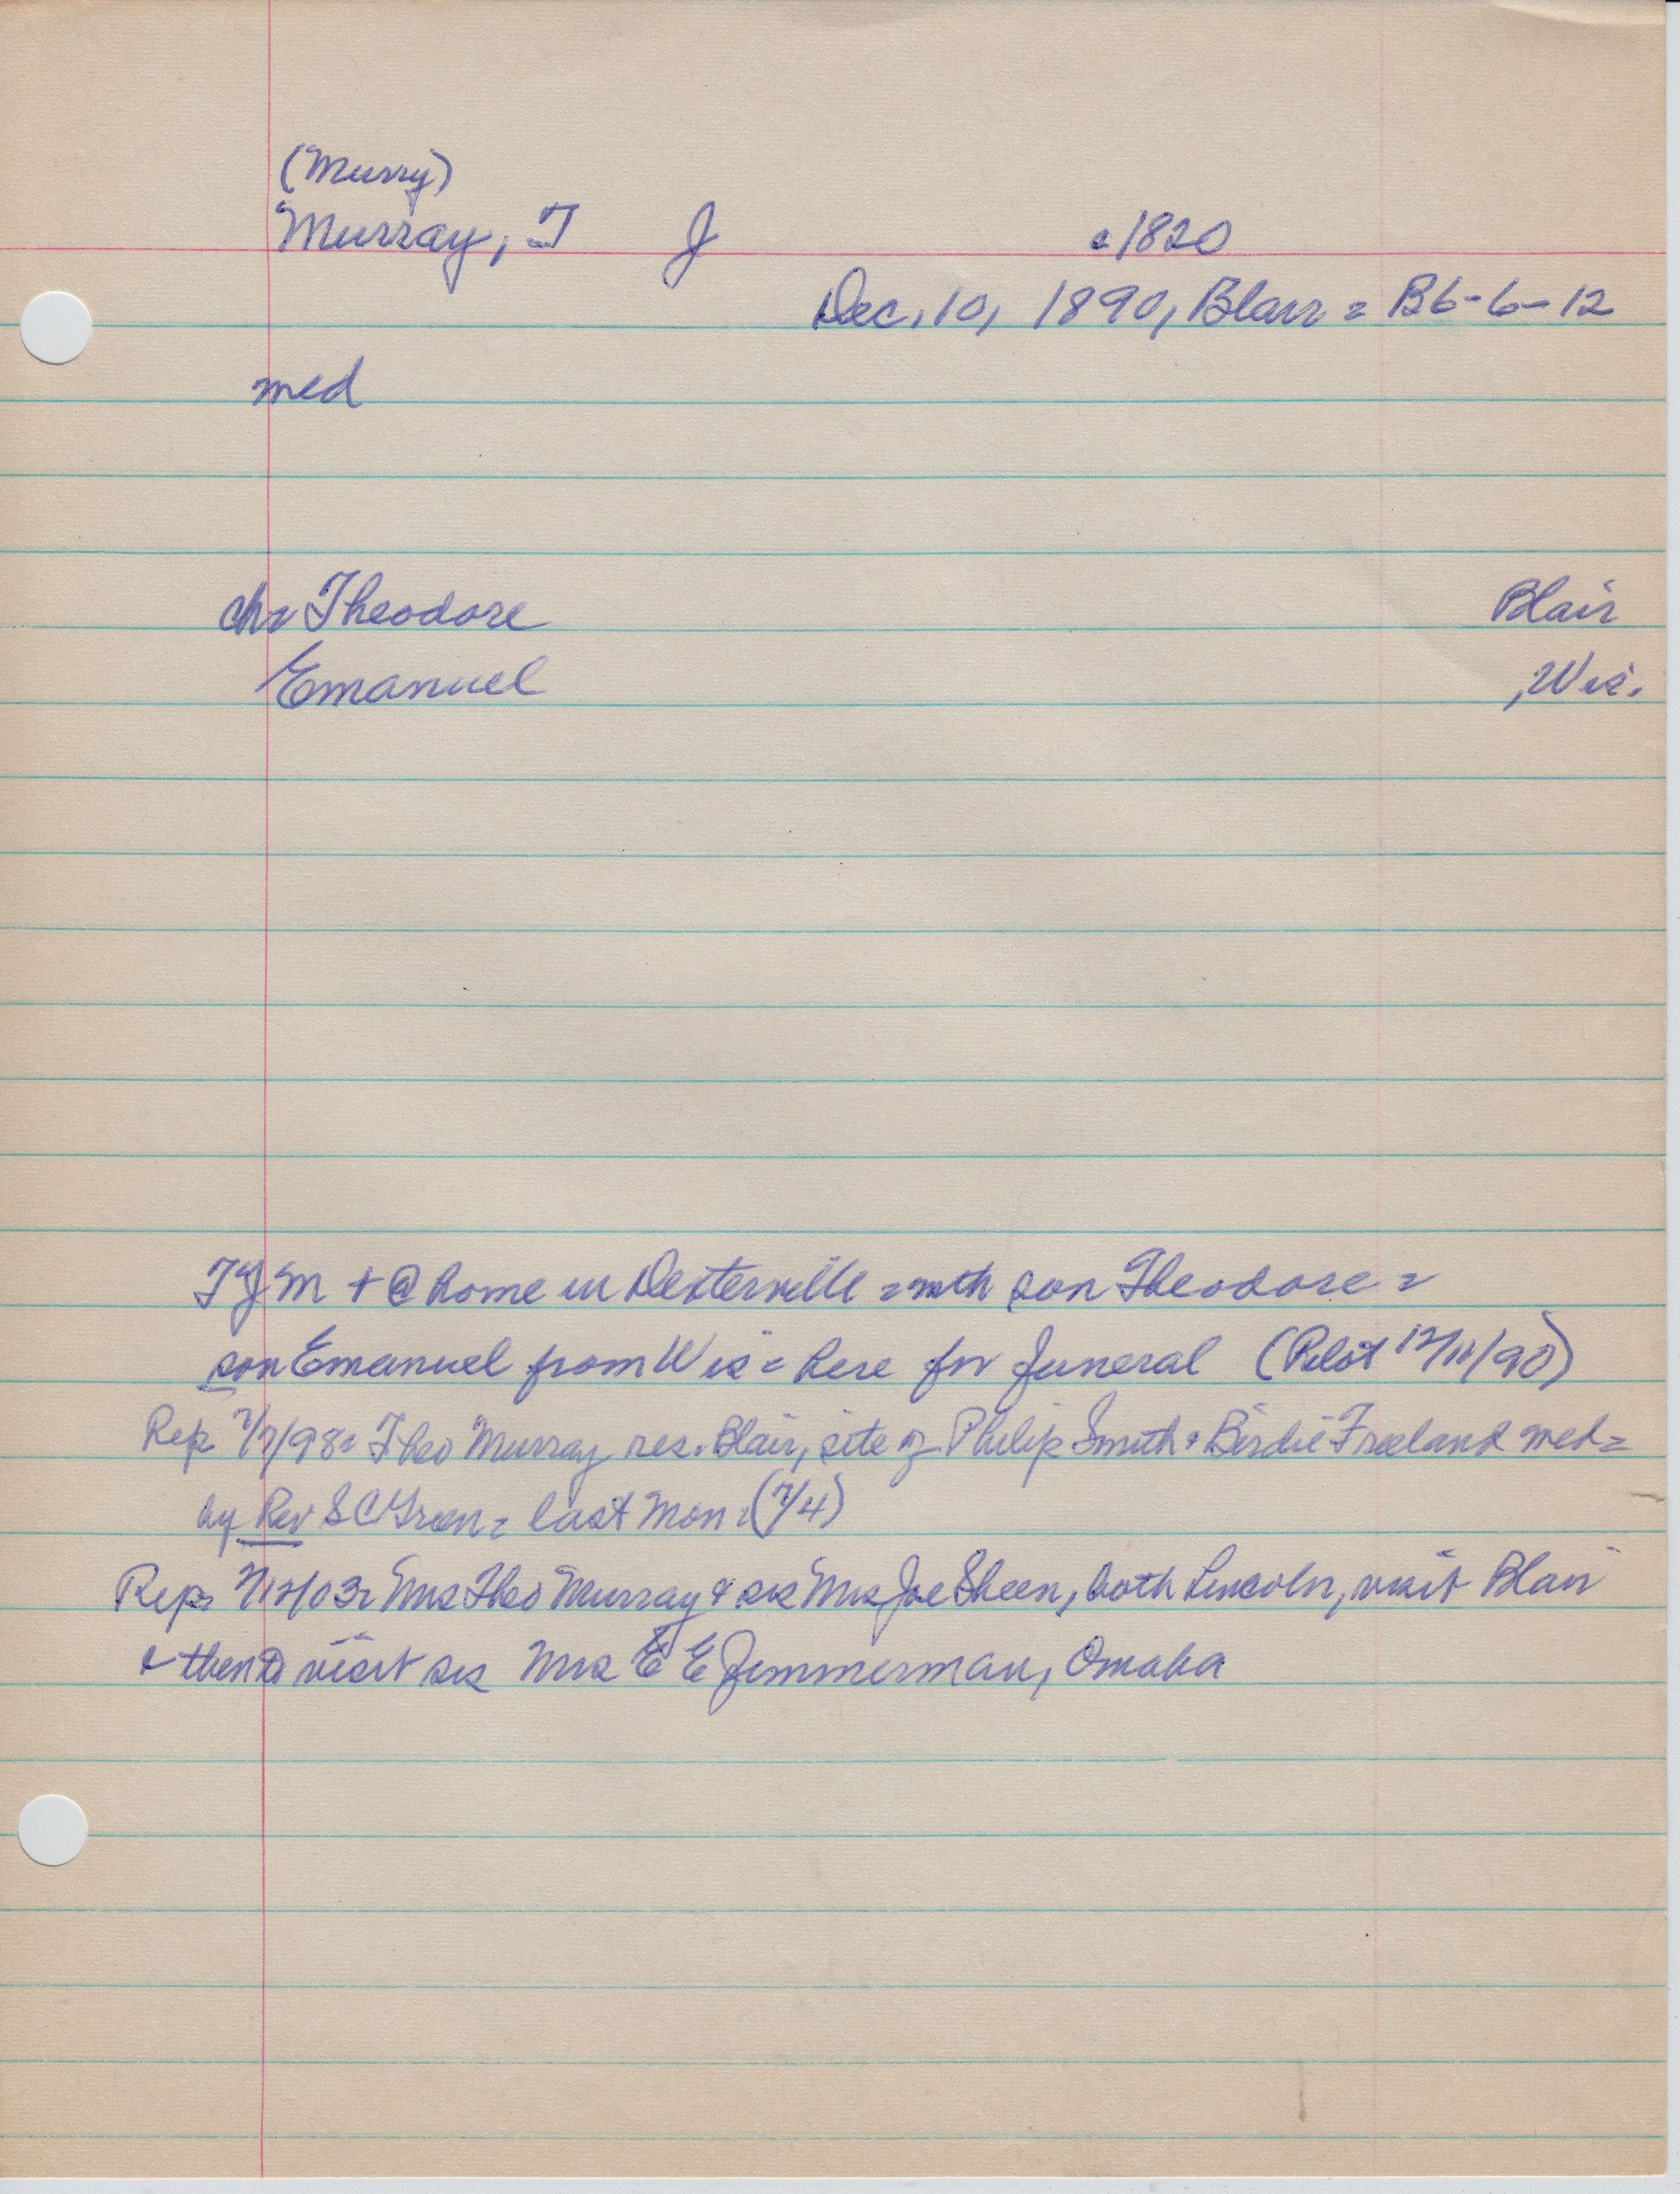 (Murry)
Murray, T J c1820
Dec. 10, 1890, Blair = B6-6-12
med
ch= Theodore Blair
Emanuel , Wis.
TJM + @ home in Dexterville = with son Theodore =
son Emanuel from Wis = here for funeral (Pilot 12/11/90)
Rep 7/7/98= Theo Murray res. Blair, site of Philip Smith = Birdie Freeland med =
by Rev S C Green = last Mon = (7/4)
Rep= Mrs Theo Murray & sis Mrs Joe Sheen, both Lincoln, visit Blair
& then to visit sis Mrs E E Zimmerman, Omaha